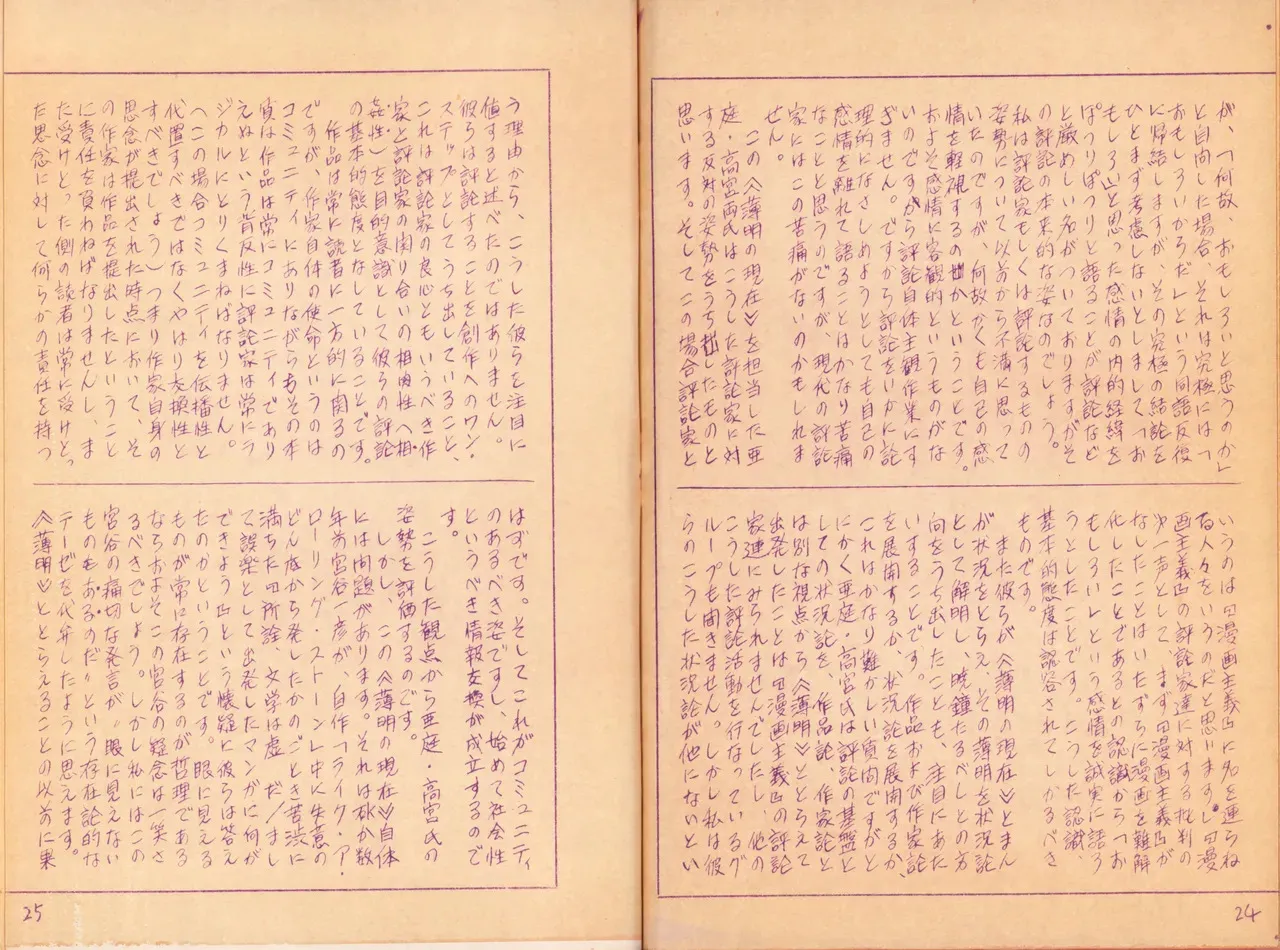 が、「何故、おもしろいと思うのか」
と自問した場合、それは究極には「
おもしろいからだ」という同語反復
に帰結しますが、その究極の結論を
ひとまず考慮しないとしまして「お
もしろい」と思った感情の内的経緯を
ぽつりぽつりと語ることが評論など
と厳めしい名がついておりますがそ
の評論の本来的な姿なのでしょう。
私は評論家もしくは評論するものの
姿勢について以前から不満に思って
いたのですが、何故かくも自己の感
情を軽視するのかということです。
およそ感情に客観的というものがな
いのですから評論自体主観作業にす
ぎません。ですから評論をいかに論
理的になさしめようとしても自己の
感情を離れて語ることはかなり苦痛
なことと思うのですが、現代の評論
家にはこの苦痛がないのかもしれま
せん。
この《薄明の現在》を担当した亜
庭・高宮両氏はこうした評論家に対
する反対の姿勢をうち出したものと
思います。そしてこの場合評論家と
いうのは『漫画主義』に名を連らね
る人々をいうのだと思いますし『漫
画主義』の評論家達に対する批判の
第一声として、まず『漫画主義』が
なしたことはいたずらに漫画を難解
化したことであるとの認識から「お
もしろい」という感情を誠実に語ろ
うとしたことです。こうした認識、
基本的態度は認容されてしかるべき
ものです。
また彼らが《薄明の現在》とまん
が状況をとらえ、その薄明を状況論
として解明し、暁鐘たるべしとの方
向をうち出したことも、注目にあた
いすることです。作品および作家論
を展開するか、状況論を展開するか、
これはかなり難かしい質問ですがと
にかく亜庭・高宮氏は評論の基盤と
しての状況論を、作品論、作家論と
は別な視点から《薄明》ととらえて
出発したことは『漫画主義』の評論
家達にみられませんでしたし、他の
こうした評論活動を行なっているグ
ループも聞きません。しかし私は彼
らのこうした状況論が他にないとい
24
う理由から、こうした彼らを注目に
値すると述べたのではありません。
彼らは評論することを創作へのワン・
ステップとしてうち出していること、
これは評論家の良心ともいうべき作
家と評論家の関り合いの相姦性(相
姦性)を目的意識として彼らの評論
の基本的態度となしていることです。
作品は常に読者に一方的に関るの
ですが、作家自体の使命というのは
コミュニティにありながらもその本
質は作品は常にコミュニティであり
えぬという背反性に評論家は常にラ
ジカルにとりくまねばなりません。
(この場合コミュニティを伝播性と
代置すべきではなくやはり交換性と
すべきでしょう)つまり作家自身の
思念が提出された時点において、そ
の作家は作品を提出したということ
に責任を負わねばなりませんし、ま
た受けとった側の読者は常に受けとっ
た思念に対して何らかの責任を持つ
はずです。そしてこれがコミュニティ
のあるべき姿ですし、始めて社会性
というべき情報交換が成立するので
す。
こうした観点から亜庭 高宮氏の
姿勢を評価するのです。
しかし、この《薄明の現在》自体
には問題があります。それは
年前宮谷一彦が、自作「ライク・ア・
ローリング・ストーン」中に失意の
どん底から発したかのごとき苦渋に
満ちた『所詮、文学は虚 だ/まし
て誤楽として出発したマンガに何が
できよう』という懐疑に彼らは答え
たのかということです。眼に見える
ものが常に存在するのが哲理である
ならおよそこの宮谷の疑念は一笑さ
るべきでしょう。しかし私にはこの
宮谷の痛切な発言が〝眼に見えない
ものもあるのだ〟という存在論的な
テーゼを代弁したように思えます。
《薄明》ととらえることの以前に果
25